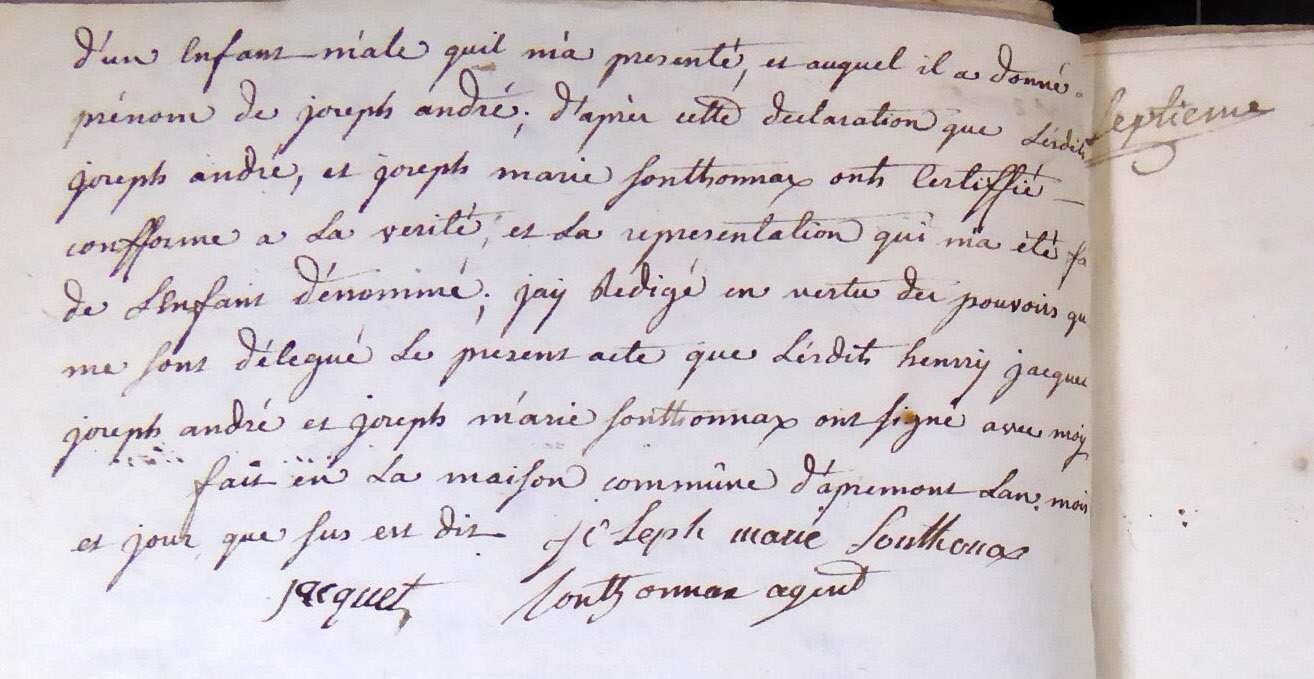 d'un Enfant mâle quil m'a presenté, et auquel il a donné
prénom de joseph andré; d'après cette declaration que Lésdits
joseph andré, et joseph marie sonthonnax onts Certiffié
confforme a La verité, et La representation qui m'a été fa
de L'Enfant dénommé; jay Redigé en vertu des pouvoirs qu
me sont délegué Le present acte que Lésdits henrry jacquet
joseph andré et joseph marie sonthonnax ont signé avec moy
fait en La maison commune d'apremont Lan mois
et jour que sus est dit joseph marie Sonthonax
jacquet Sonthonnax agent
Septieme